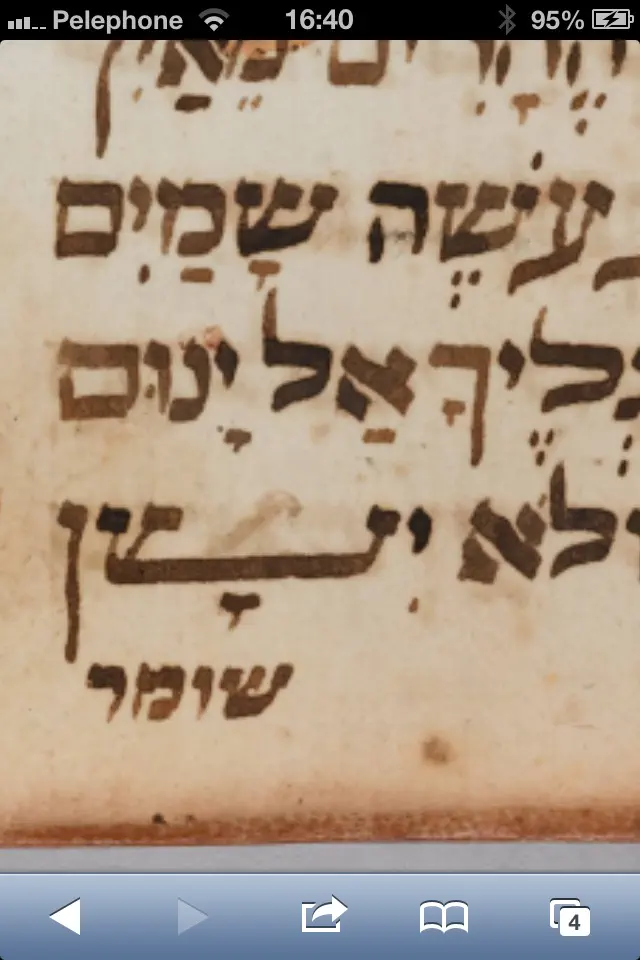 Pelephone 16:40 95%
הֶהָרִים מֵאַיִן
עֹשֶה שָמַיִם
אַל יָנוּם
ולֹא יִשָן
שומר
4